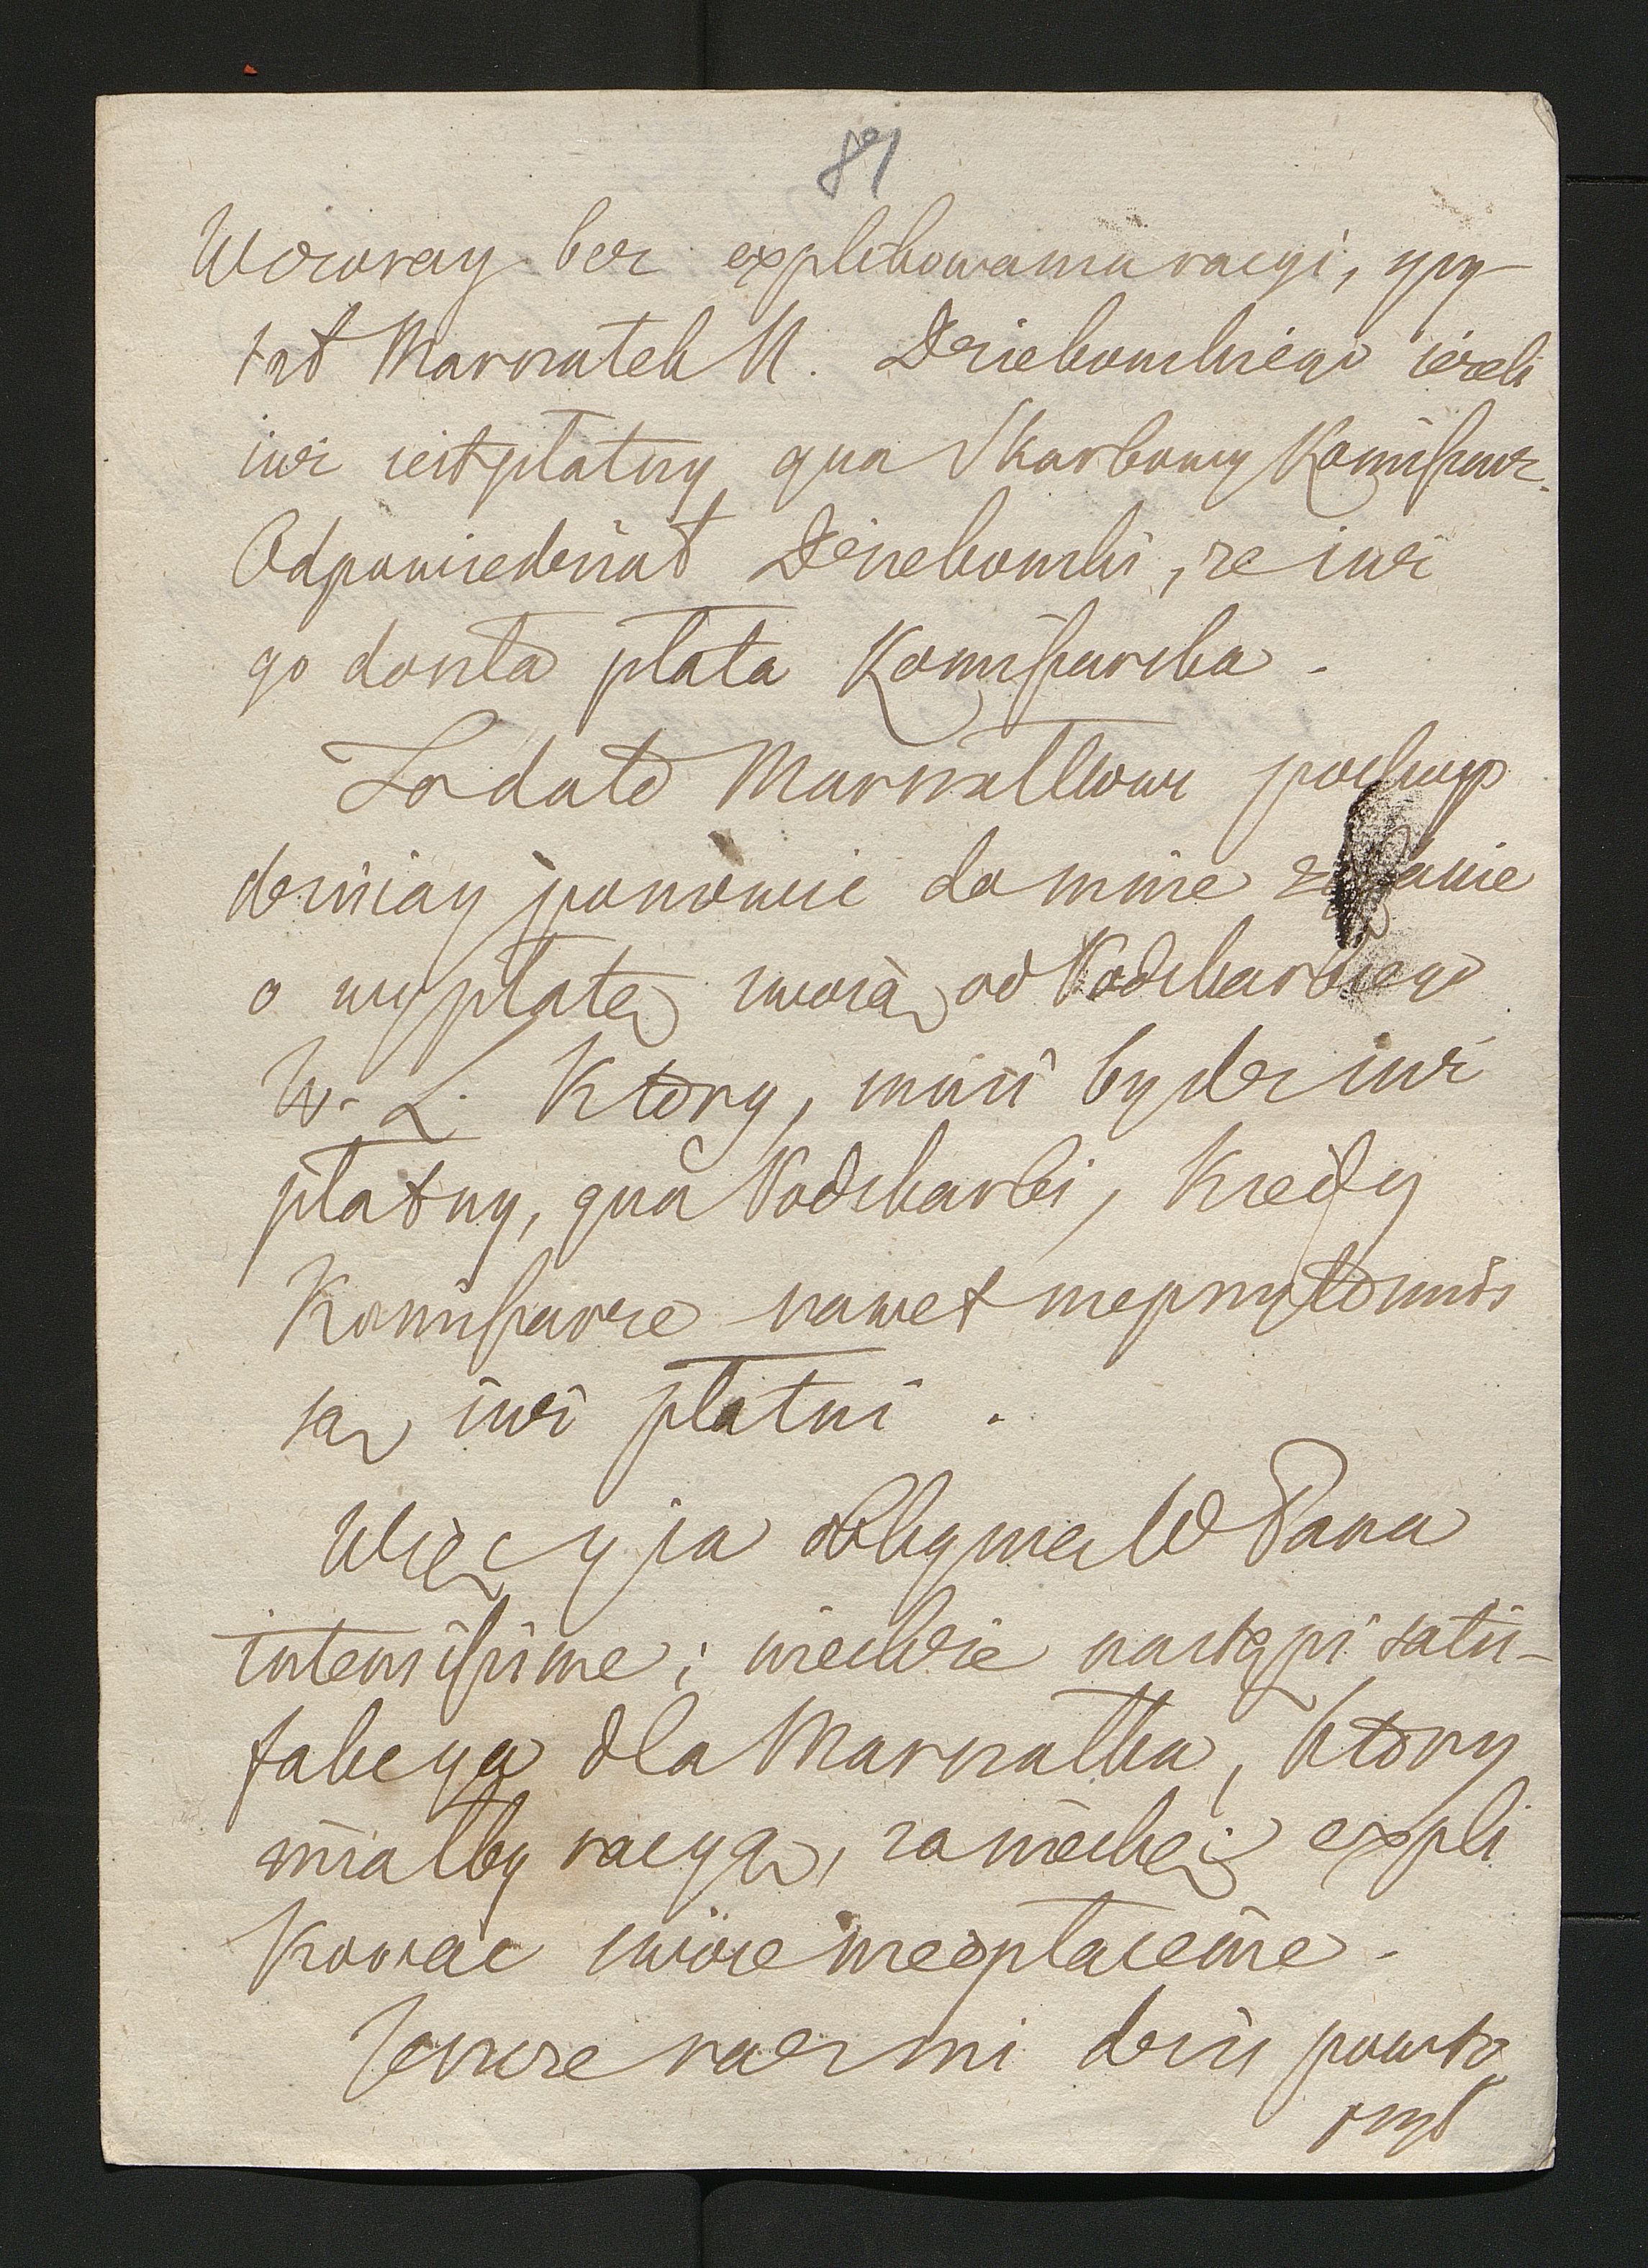 81
Wczoray bez explikowania racyi, spy-
tał Marszałek M. Dziekonskiego iezeli
iuz iest płatny qua Skarbowy Komissarz.
Odpowiedział Dziekonski, ze iuz
go doszła płata Komissarska.
To dało Marszałkowi pochop
dzisiay ponowic do mnie ządanie
o wypłatę swoią od Podskarbiego
W. L. Ktory, musi bydz iuz
płatny, qua Podskarbi, Kiedy
Komissarze nawet nieprzytomni
są iuz płatni.
Więc y ia obliguię W Pana
intensissime; niechze nastąpi satis-
fakcya dla Marszałka, ktory
miałby racyą, za niechęć expli
kowac swoie nieopłacenie.
Jeszcze raz mi dzis powto
rzył